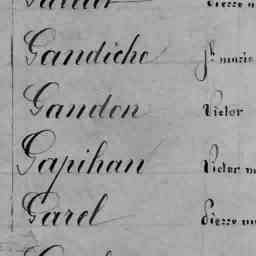 Gandiche Jh marie
Gandon Victor
Gapihan Victor m
Garel Pierre m